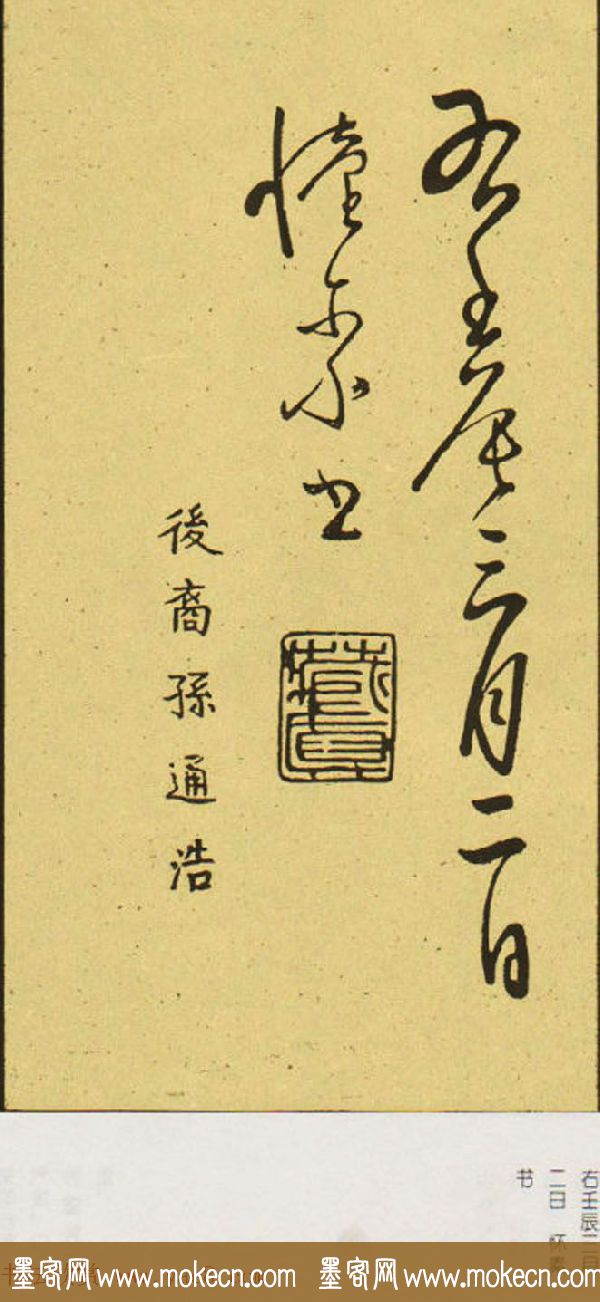 右壬辰三月二日
懷素書
藏真
後裔孫通浩
右壬辰三月
二日 怀素
书
墨客网 www.mokecn.com 墨客网 www.mokecn.com